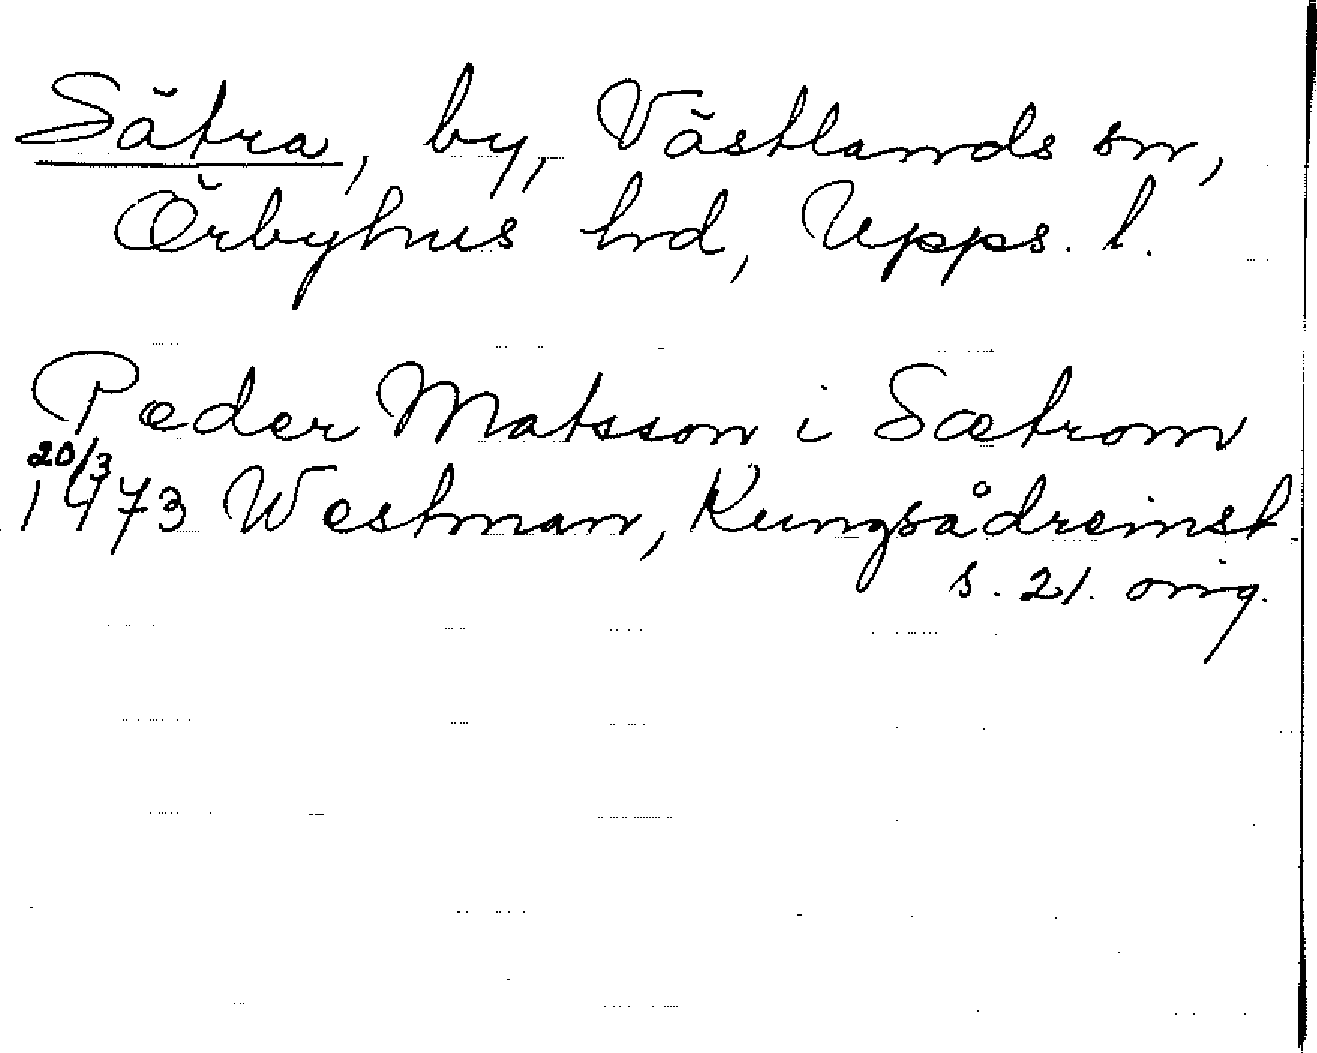 Sätra, by, Västlands sn,
Örbyhus hd, Upps. l.
Peder Matsson i Sætrom
20/3
1473 Westman, Kungsådreinst
s. 21. orig.